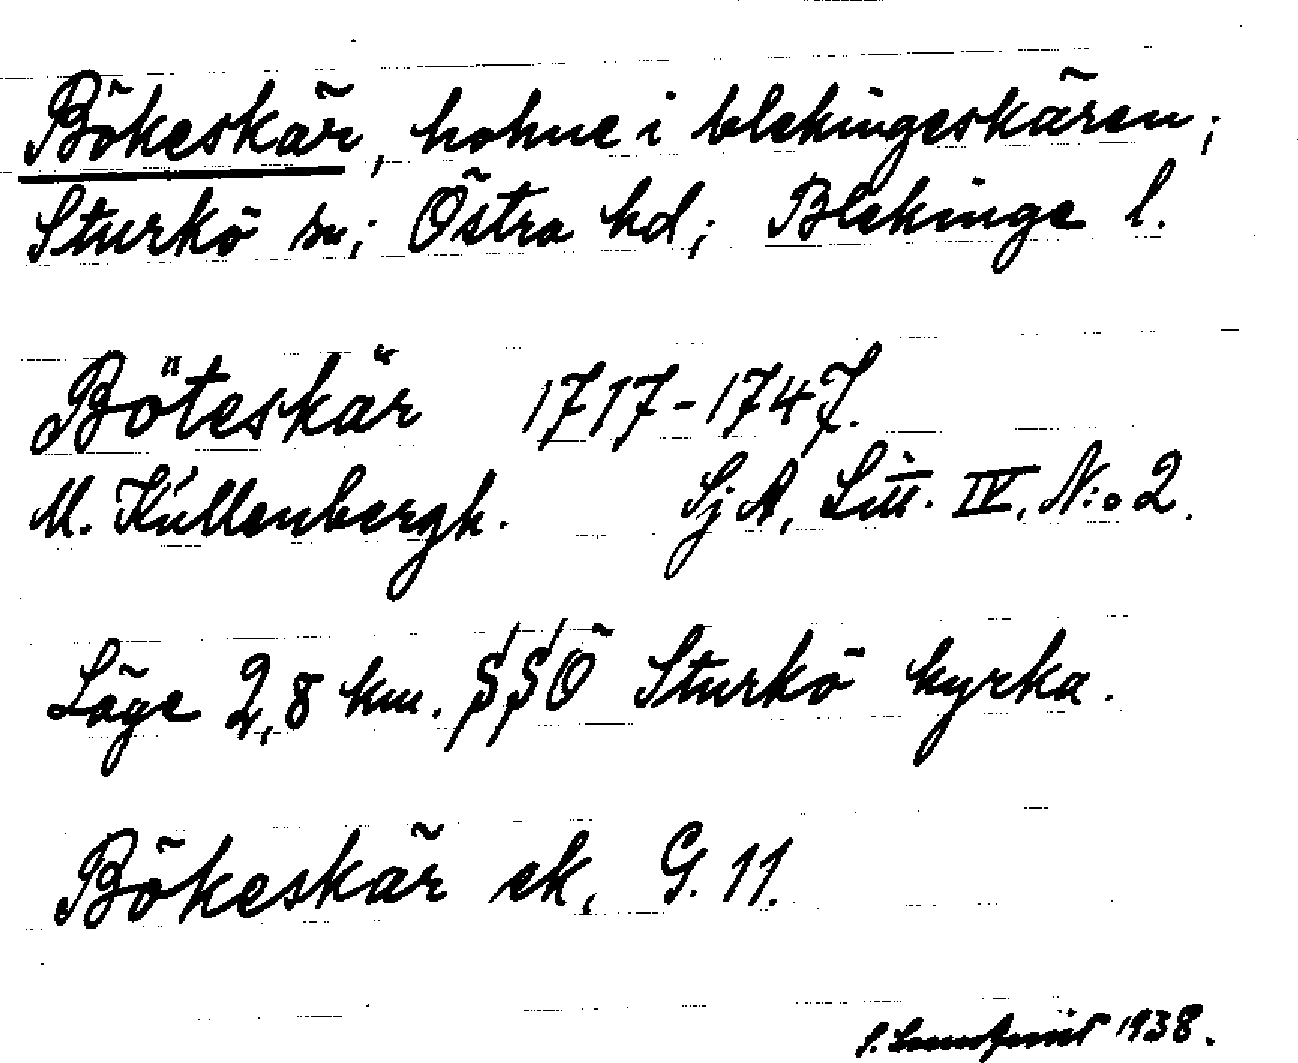 Bökeskär, holme i blekingeskären;
Sturkö sn; Östra hd; Blekinge l.
Böteskär 1717-1747.
M. Küllenbergh. Sj A, Litt. IV, N:o 2.
Läge 2,8 km. SSÖ Sturkö kyrka.
Bökeskär ek, G. 11.
1938.